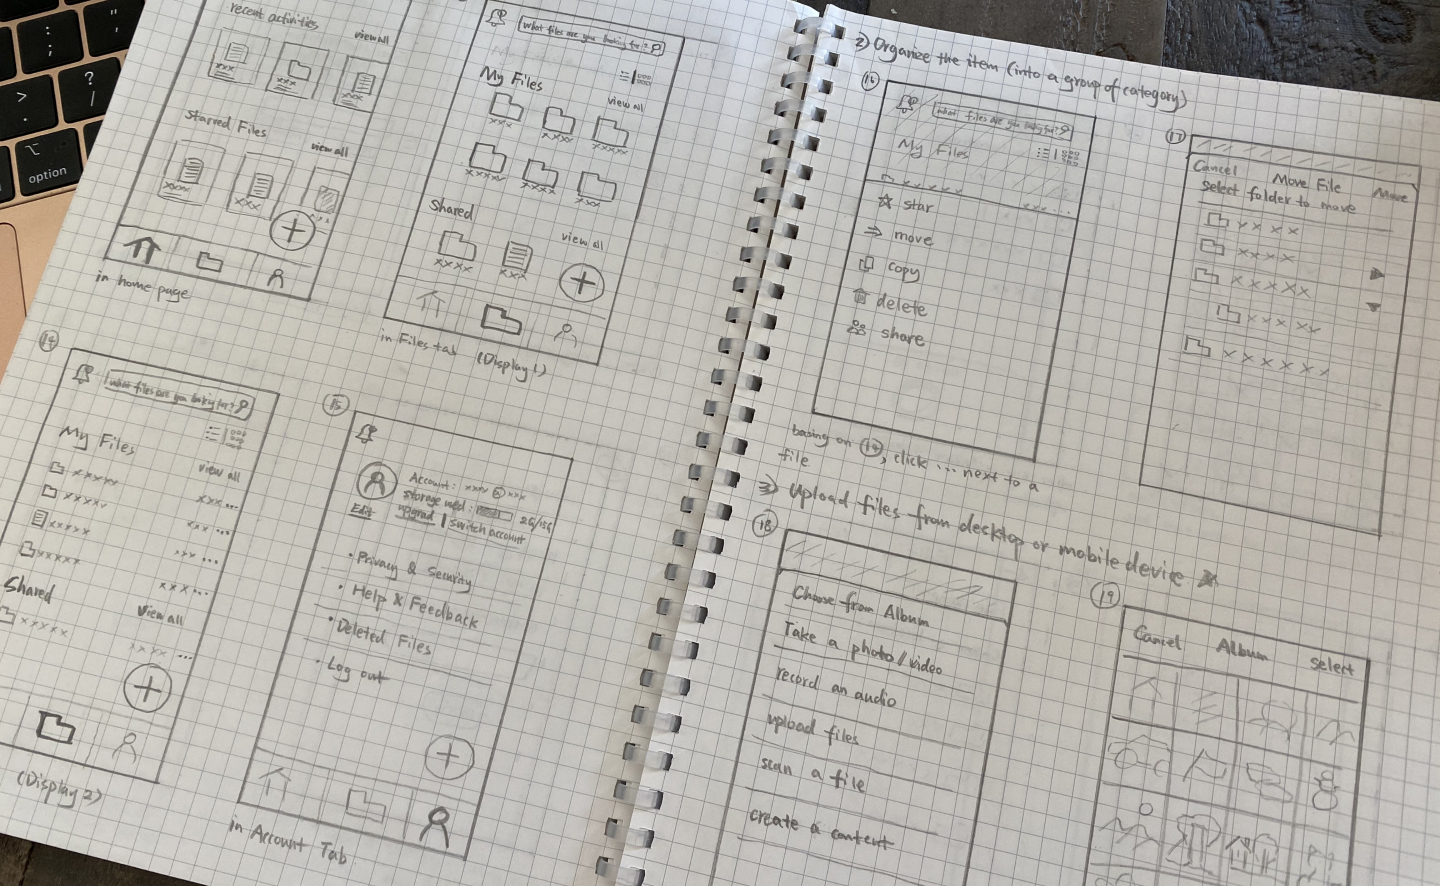 recent activities
view all
xxx
xxx
xxx
starred Files
view all
xxxx
xxx
in home page
what files are you looking for?
My Files
view all
xxx
xxxx
xxxxx
xxxxx
xxxx
xxx
Shared
view all
xxxx
xxx
in Files tab (Display 1)
14
what files are you looking for?
My Files
view all
xxxxx
xxx...
xxxxx
xxx ...
xxxxx
... ...
xxxxx
xxx...
Shared
view all
xxxxx
xxxx ...
(Display 2)
15
Account: xxxx @ xxx
storage used: 2G/15G
Edit
upgrad | switch account
• Privacy & Security
• Help & Feedback
• Deleted Files
• Log out
in Account Tab
2) Organize the item (into a group of category)
16
what files are you looking for?
My Files
xxxxxx
xxx ...
star
move
copy
delete
share
basing on 14, click ... next to a
file
17
Cancel Move File Move
Select folder to move
xxxx
xxxx
xxxxx
xxxxx
xxxxxx
3) Upload files from desktop or mobile device
18
Choose from Album
Take a photo/video
record an audio
upload files
scan a file
create a content
19
Cancel Album select
:
;
"
'
>
.
?
/
option